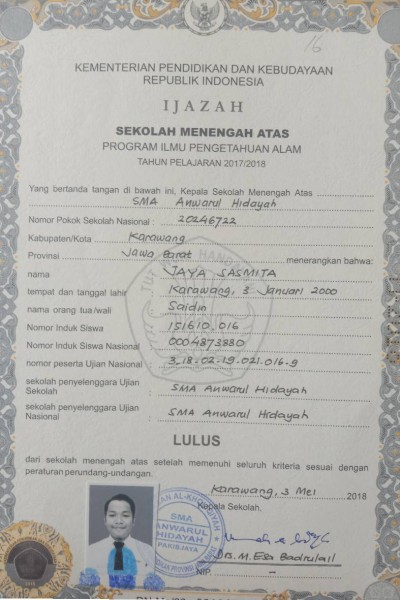 16
KEMENTERIAN PENDIDIKAN DAN KEBUDAYAAN
REPUBLIK INDONESIA
IJAZAH
SEKOLAH MENENGAH ATAS
PROGRAM ILMU PENGETAHUAN ALAM
TAHUN PELAJARAN 2017/2018
Yang bertanda tangan di bawah ini, Kepala Sekolah Menengah Atas
SMA Anwarul Hidayah
Nomor Pokok Sekolah Nasional : 20246722
Kabupaten/Kota Karawang
Provinsi Jawa Barat menerangkan bahwa:
nama : JAYA SASMITA
tempat dan tanggal lahir : Karawang, 3 Januari 2000
nama orang tua/wali : Saidin
Nomor Induk Siswa : 151610.016
Nomor Induk Siswa Nasional : 0004873880
nomor peserta Ujian Nasional : 3.18.02.19.021.016.9
sekolah penyelenggara Ujian Sekolah : SMA Anwarul Hidayah
sekolah penyelenggara Ujian Nasional : SMA Anwarul Hidayah
LULUS
dari sekolah menengah atas setelah memenuhi seluruh kriteria sesuai dengan
peraturan perundang-undangan.
Karawang, 3 Mei 2018
Kepala Sekolah,
SMA
ANWARUL
HIDAYAH
PAKISJAYA
Drs. M. Esa Badrulail
NIP. –